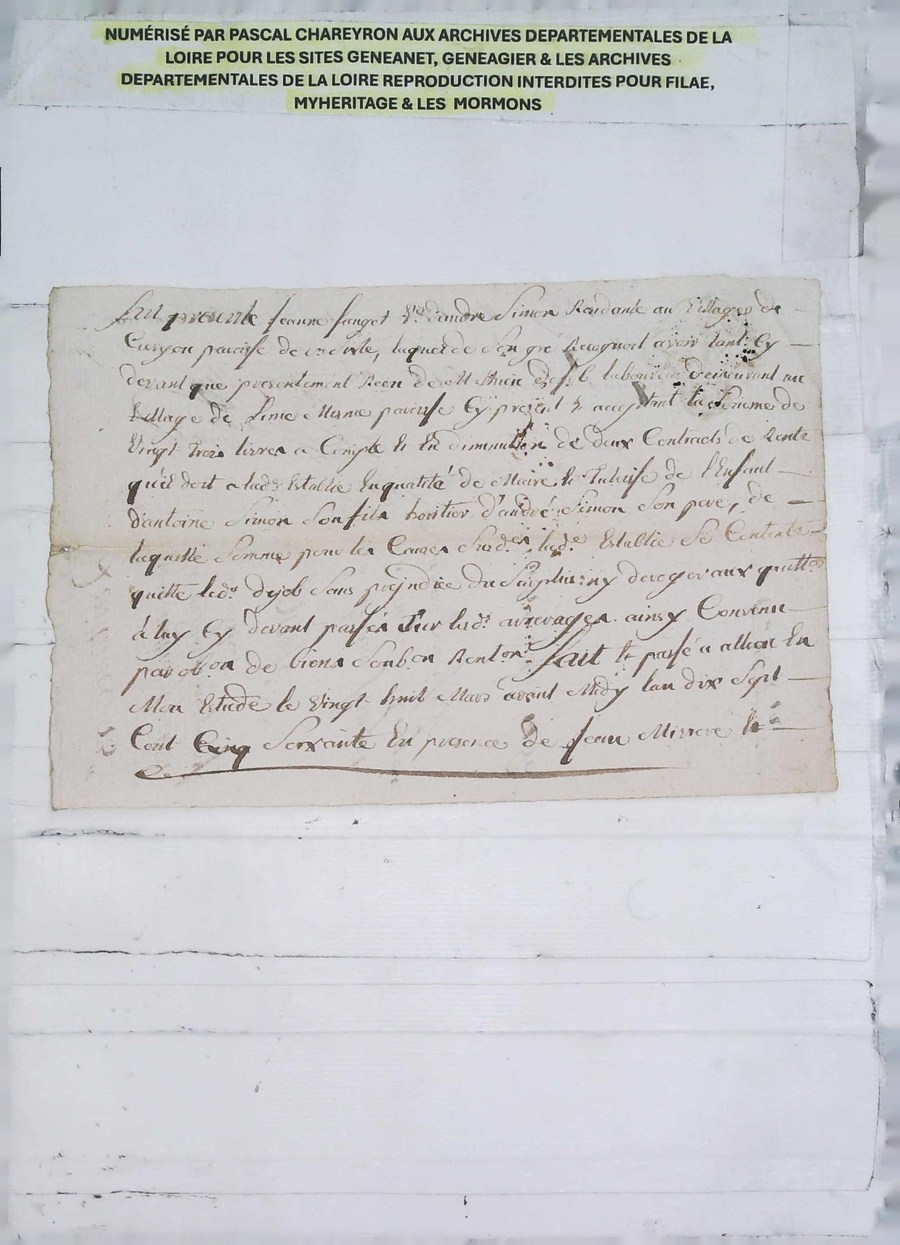 NUMÉRISÉ PAR PASCAL CHAREYRON AUX ARCHIVES DEPARTEMENTALES DE LA
LOIRE POUR LES SITES GENEANET, GENEAGIER & LES ARCHIVES
DEPARTEMENTALES DE LA LOIRE REPRODUCTION INTERDITES POUR FILAE,
MYHERITAGE & LES MORMONS
fut presente Jeanne fanget Vᵉ d'andre Simon Residante au Village de
paroisse de laquelle de Son gré Recognoit avoir tant Cy
devant que presentement Receu de laboureur demeurant au
Village de paroisse Cy present & acceptant la Somme de
Vingt Trois livres a Compte & En diminution de deux Contracts de Rente
qu'il doit a ladᵉ Establie En qualité de Maire & Tutrise de l'Enfant
d'antoine Simon Son fils heritier d'andré Simon Son pere, de
laquelle Somme pour les Causes Susdᵉˢ ladᵉ Establie Se Contente
quitte ledᵗ Sans prejudice du Surplus ny deroger aux quittᵉˢ
à luy Cy devant passés Sur lesdᵗ arrerages ainsy Convenu
par obᵒⁿ de biens Soubⁿ Renⁿ fait & passé a En
Mon Etude le Vingt huit Mars avant Midy l'an dix Sept
Cent Cinq Soixante En presence de Jean &